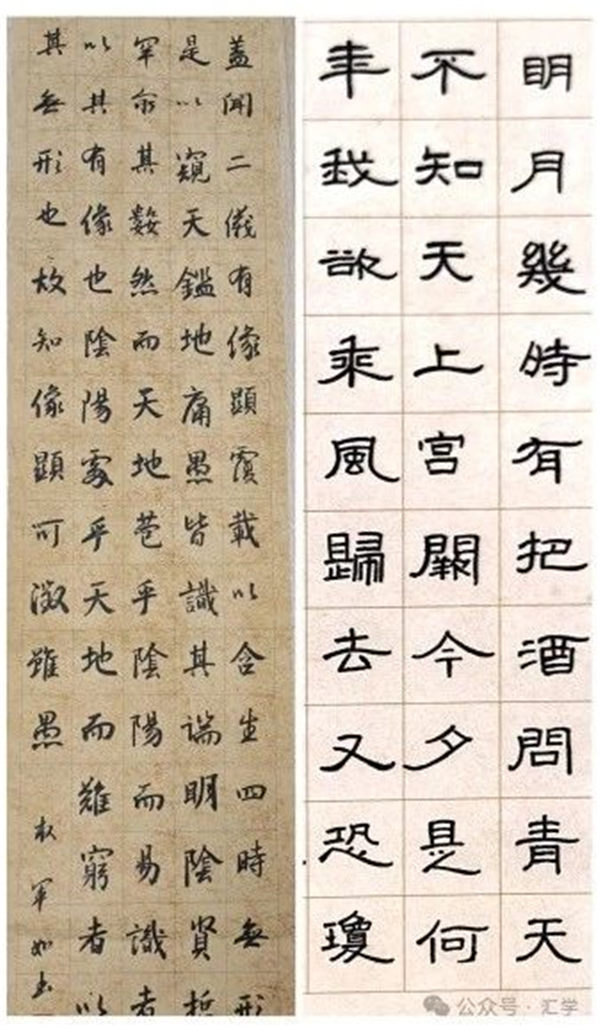 蓋聞二儀有像顯覆載以含生四時無形
是以窺天鑑地庸愚皆識其端明陰賢哲
罕其數然而天地苞乎陰陽而易識者
以其有像也陰陽處乎天地而難窮者以
其無形也故知像顯可徵雖愚
明月幾時有把酒問青天
不知天上宮闕今夕是何
年我欲乘風歸去又恐瓊
公众号 · 汇学